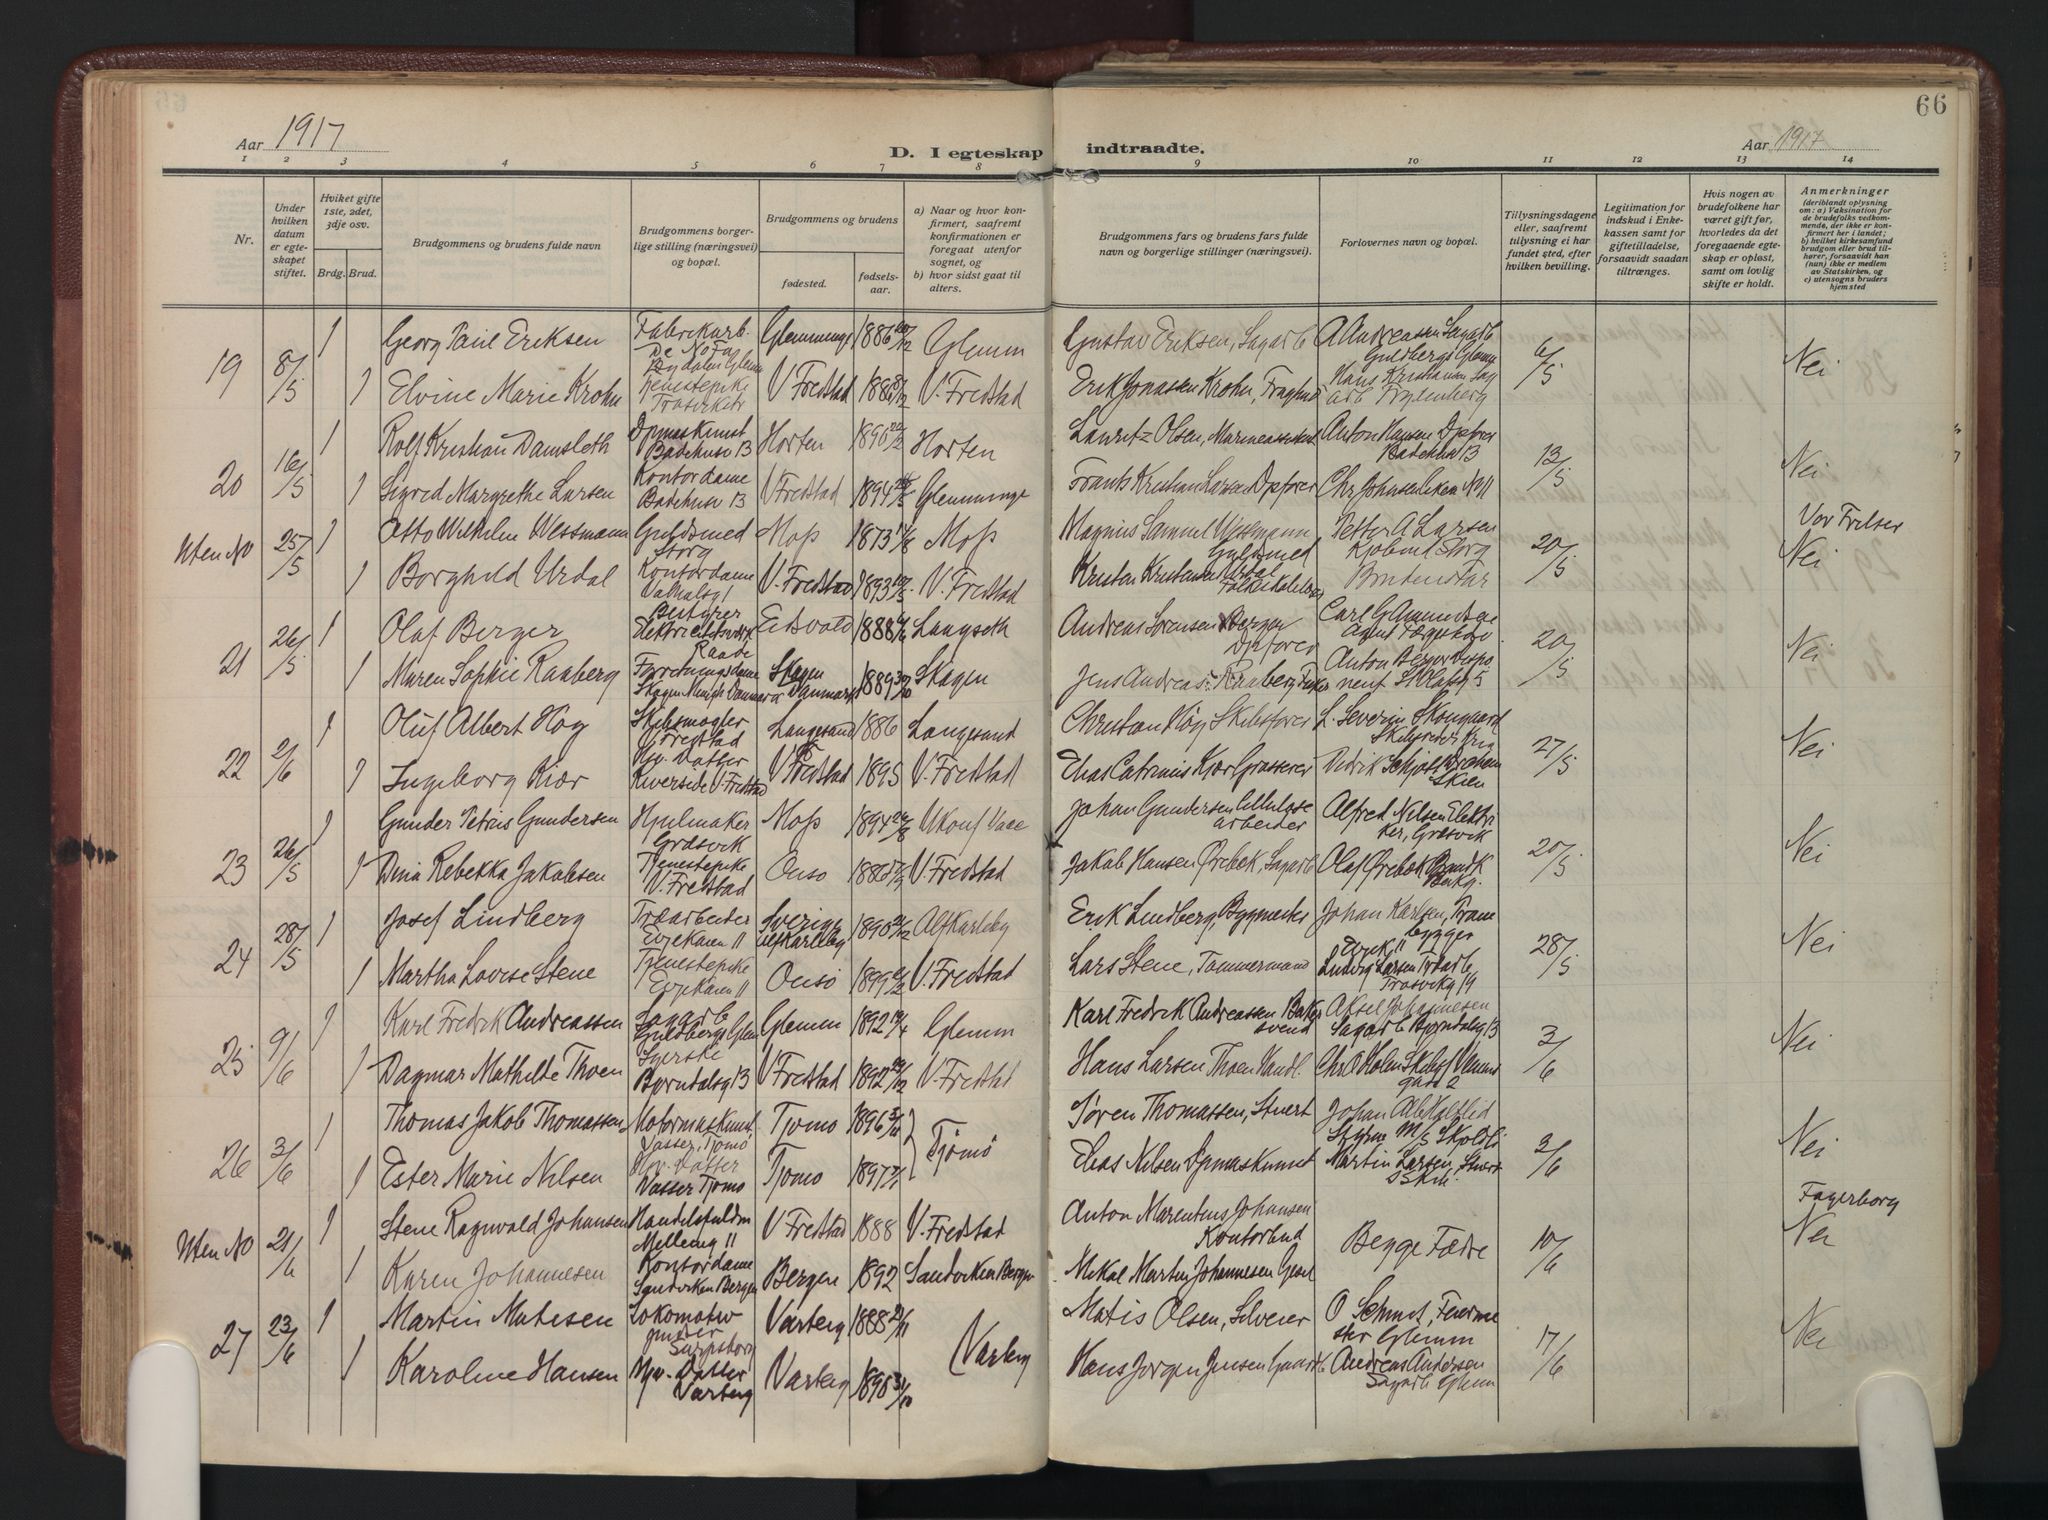 66
Aar 1917
D. I egteskap indtraadte.
Aar 1917
1 2 3 4 5 6 7 8 9 10 11 12 13 14
Nr.
Under hvilken datum er egteskapet stiftet.
Hviket gifte 1ste, 2det, 3dje osv.
Brdg. Brud.
Brudgommens og brudens fulde navn
Brudgommens borgerlige stilling (næringsvei) og bopæl.
Brudgommens og brudens
fødested.
fødselsaar.
a) Naar og hvor konfirmert, saafremt konfirmationen er foregaat utenfor sognet, og
b) hvor sidst gaat til alters.
Brudgommens fars og brudens fars fulde navn og borgerlige stillinger (næringsvei).
Forlovernes navn og bopæl.
Tillysningsdagene eller, saafremt tillysning ei har fundet sted, efter hvilken bevilling.
Legitimation for indskud i Enkekassen samt for giftetilladelse, forsaavidt saadan tiltrænges.
Hvis nogen av brudefolkene har været gift før, hvorledes da det foregaaende egteskap er opløst, samt om lovlig skifte er holdt.
Anmerkninger
(deriblandt oplysning om: a) Vaksination for de brudefolks vedkommende, der ikke er konfirmert her i landet; b) hvilket kirkesamfund brudgom eller brud tilhører, forsaavidt han (hun) ikke er medlem av Statskirken, og c) utensogns bruders hjemsted
19 8/5 1 Georg Paul Eriksen Fabrikarb. De No Fa Glemminge 1886 Glemm Gustav Eriksen, Sagarb A Andreassen Sagarb 6/5 Nei
1 Elvine Marie Krohn Tjenestepike V. Fredstad V. Fredstad Erik Jonassen Krohn Hans Kristiansen Sagarb
20 16/5 1 Rolf Kristian Damsleth Dpmaskinist Badehusg 13 Horten 1890 Horten Lauritz Olsen, Anton Hansen Dpfører Badehusg 13 13/5 Nei
1 Sigred Margrethe Larsen Kontordame Badehusg 13 V Fredstad 1894 Glemminge Frants Kristian Larsen Dpfører Chr Johnsen
Uten No 25/5 1 Otto Wilhelm Wessmann Guldsmed Storg Moss 1873 Moss Magnus Samuel Wessmann Guldsmed Petter A Larsen Kjøbmd Storg 20/5 Vor Frelser Nei
1 Borghild Urdal Kontordame V. Fredstad 1893 V. Fredstad Kristen Kristensen Urdal
21 26/5 1 Olaf Berger Bestyrer Raade Eidsvold 1888 Langseth Andreas Sørensen Bergen Dpfører Carl G Amundsen Agent 20/5 Nei
1 Maren Sophie Raaberg Forretningsdame Skagen Danmark 1889 Skagen Jens Andreas Raaberg Fisker Anton Berger
22 2/6 1 Oluf Albert Høg Skibsmægler Langesund 1886 Langesund Christian Høg Skibsfører L. Severin Skougaard Skibsreder 27/5 Nei
1 Ingeborg Kiær Hjv. Datter Riverside V. Fredstad V Fredstad 1895 V. Fredstad Elias Catrinus Kiær Grosserer Didrik Schjøtt Skien
23 26/5 1 Gunder Petrus Gundersen Hjulmaker Græsvik Moss 1894 Ukonf Johan Gundersen Cellulosearbeider Alfred Nilsen Elektriker, Græsvik 20/5 Nei
1 Dina Rebekka Jakobsen Tjenestepike V. Fredstad Onsø V. Fredstad Jakob Hansen Ørebek, Sagarb Olaf Ørebek
24 28/5 1 Josef Lindberg Træarbeider Sverige Elfkarleby 1890 Alfkarleby Erik Lindberg, Bygmester Johan Karlsen 28/5 Nei
1 Martha Lovise Stene Tjenestepike Onsø 1899 V. Fredstad Lars Stene, Tømmermand Ludvig Larsen Trosvikg 19
25 9/6 1 Karl Fredrik Andreassen Sagarb Guldbergs Glem Glemm 1892 Glemm Karl Fredrik Andreassen Bakersvend Aksel Johannesen Sagarb Bjørndalsg 13 3/6 Nei
1 Dagmar Mathilde Thoen Syerske Bjørndalsg 13 V Fredstad 1892 V. Fredstad Hans Larsen Thoen Handl.
26 3/6 1 Thomas Jakob Thomassen Motormaskinist Vasser, Tjømø Tjømø 1896 Tjømø Søren Thomassen, Stuert Johan 3/6 Nei
1 Ester Marie Nilsen Hjv. Datter Vasser Tjømø Tjømø 1897 Elias Nilsen Dpmaskinist Martin Larsen,
Uten No 21/6 1 Stene Ragnvald Johansen Handelsfuldm Mellemg 11 V Fredstad 1888 V. Fredstad Anton Marentius Johansen Kontorbud Begge Fædre 10/6 Fagerborg Nei
1 Karen Johannesen Kontordame Sandviken Bergen Bergen 1892 Sandviken Bergen Mikal Martin Johannesen
27 23/6 1 Martin Matisen Lokomotivpudser Sarpsborg Varteig 1888 21/11 Varteig Matis Olsen, Selveier O Schmit, Feiermester Glemm 17/6 Nei
1 Karoline Hansen Hjv. Datter Varteig Varteig 31/10 Hans Jørgen Jensen Andreas Andersen Sagarb Glemm